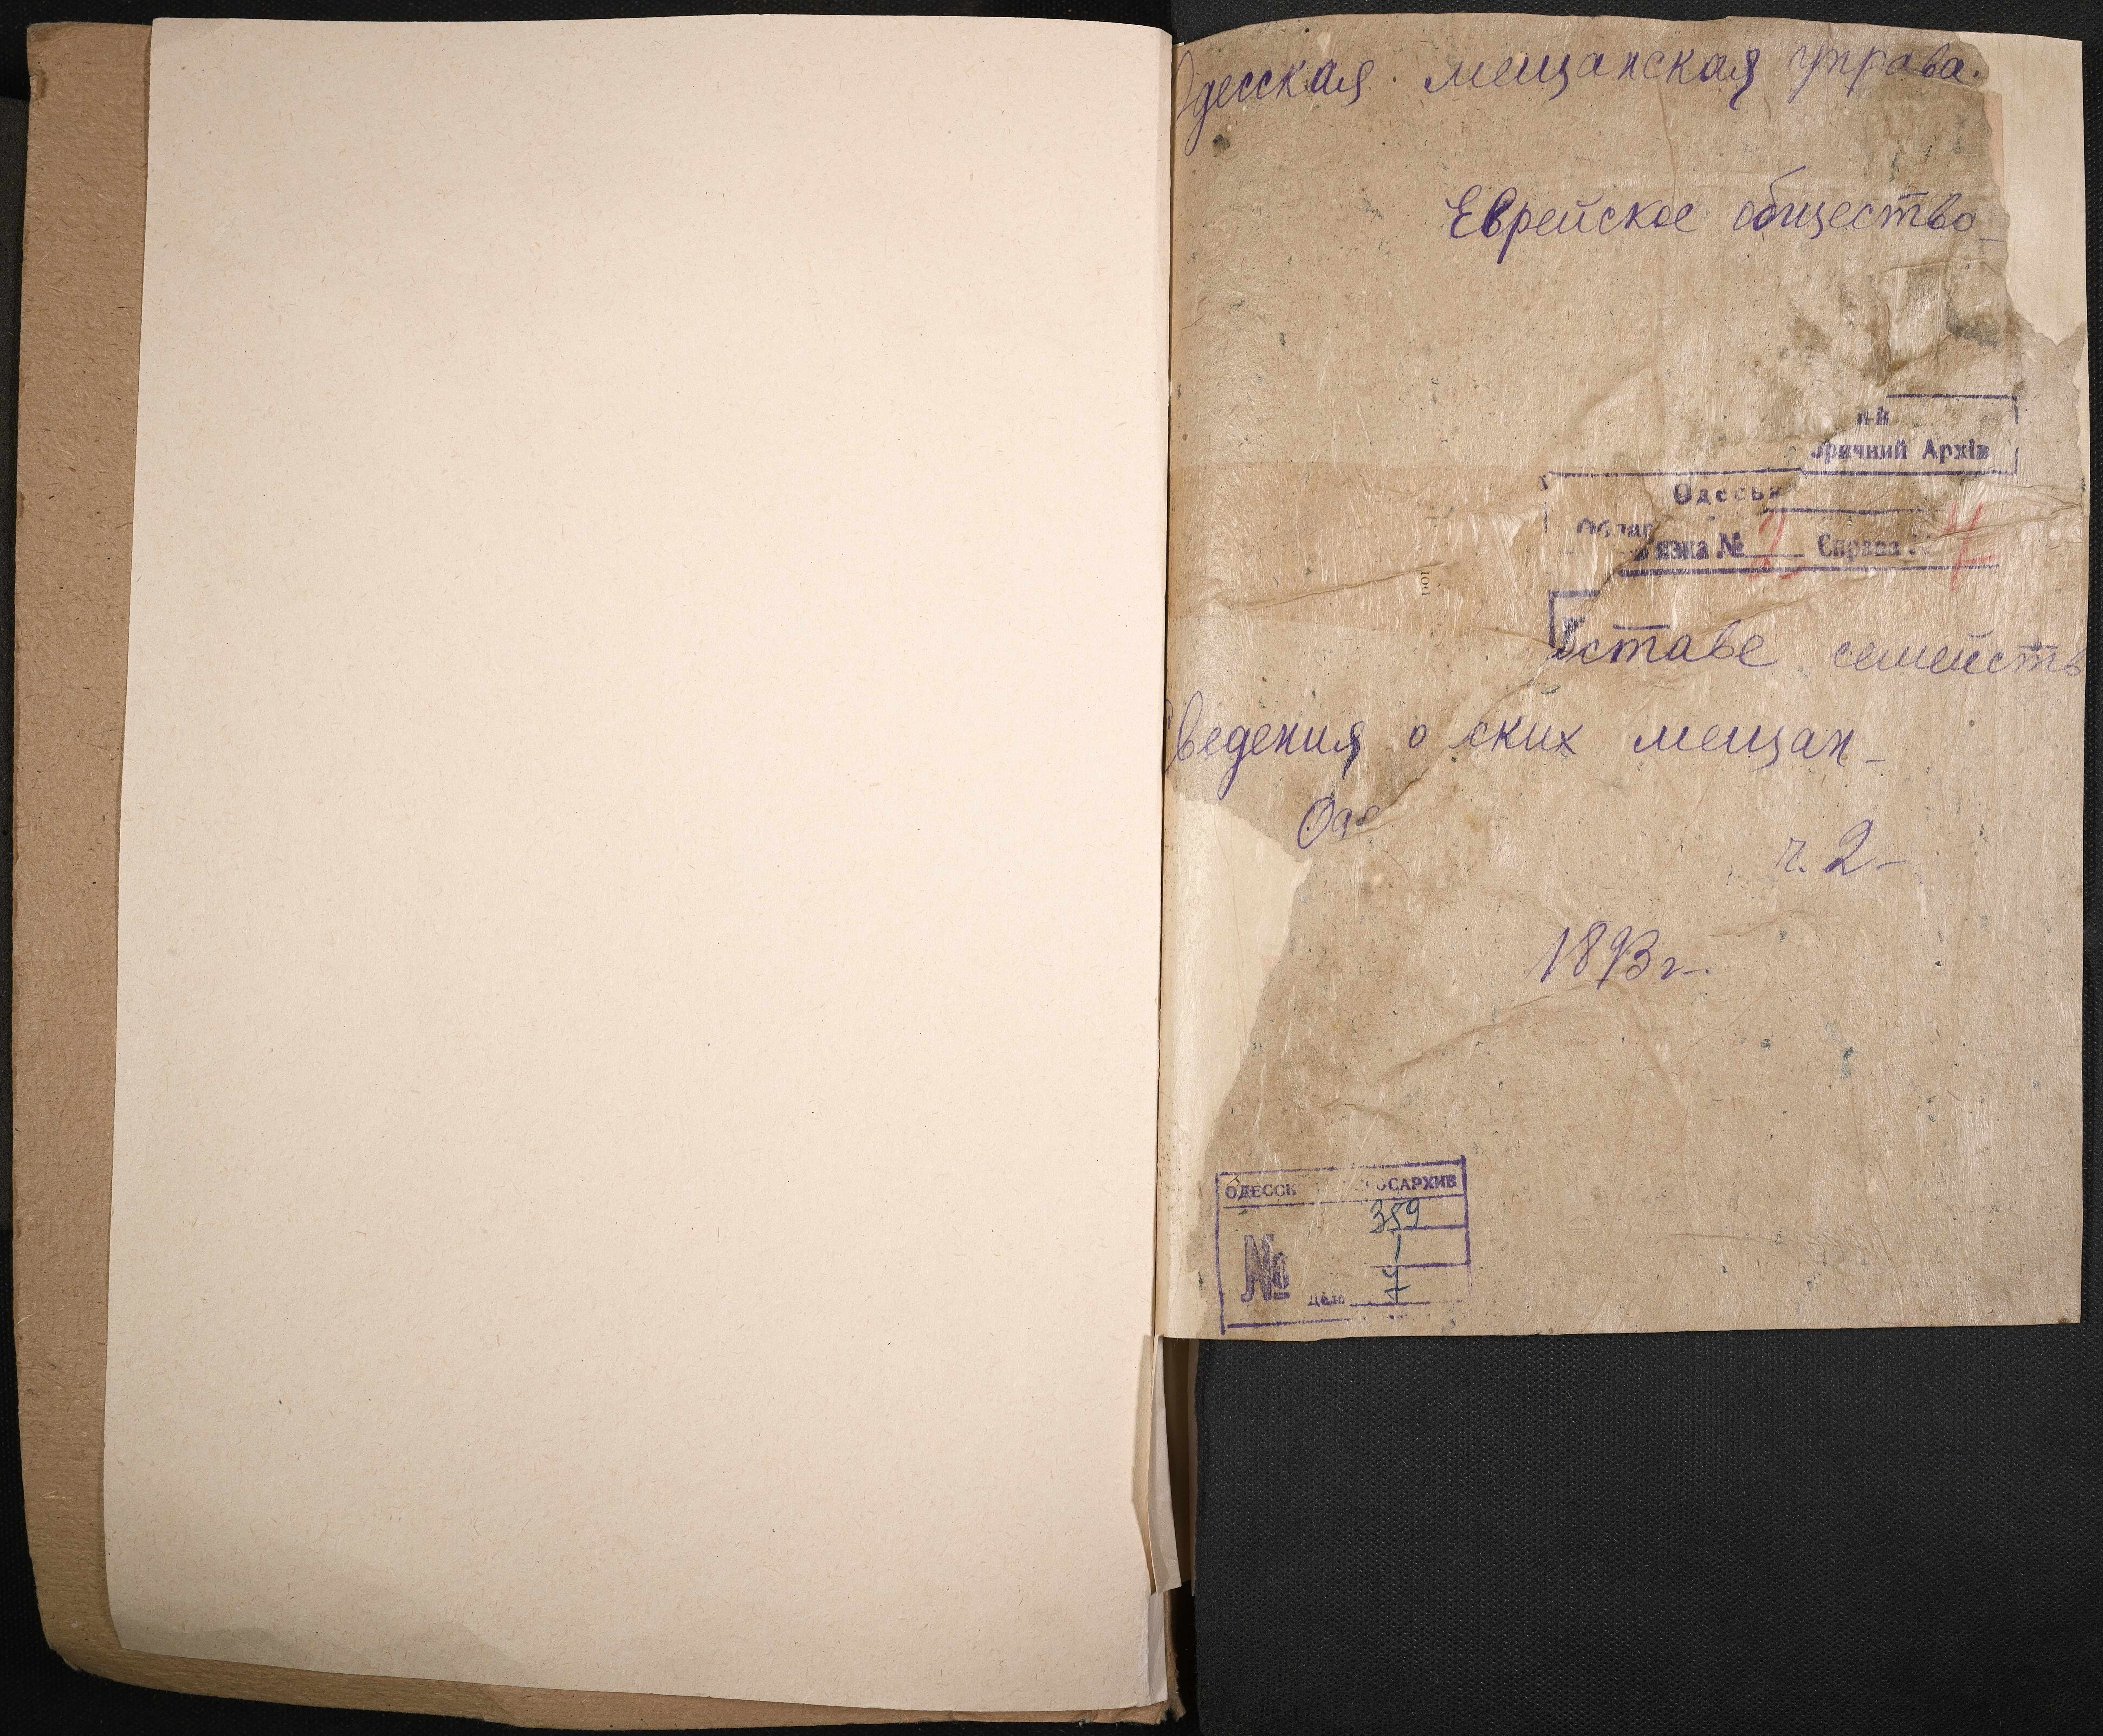 Одесская мещанская управа.
Еврейское общество
ричний Архів
Одеськ
язка № 2 Справа № 7
ставе семейств
Сведения о ских мещан
Оде
ч. 2
1893 г.
ОДЕССК ОСАРХИВ
359
1
№ дело 7